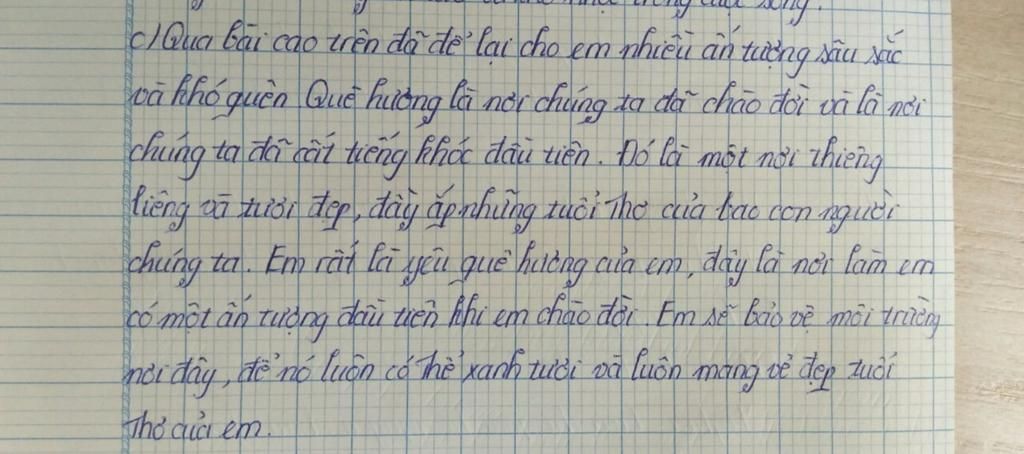 c) Qua bài cao trên đã để lại cho em nhiều ấn tượng sâu sắc
và khó quên Quê hương là nơi chúng ta đã chào đời và là nơi
chúng ta đã cất tiếng khóc đầu tiên. Đó là một nơi thiêng
liêng và tươi đẹp, đầy ắp những tuổi thơ của bao con người
chúng ta. Em rất là yêu quê hương của em, đây là nơi làm em
có một ấn tượng đầu tiên khi em chào đời. Em sẽ bảo vệ môi trường
nơi đây, để nó luôn có thể xanh tươi và luôn mang vẻ đẹp tuổi
thơ của em.